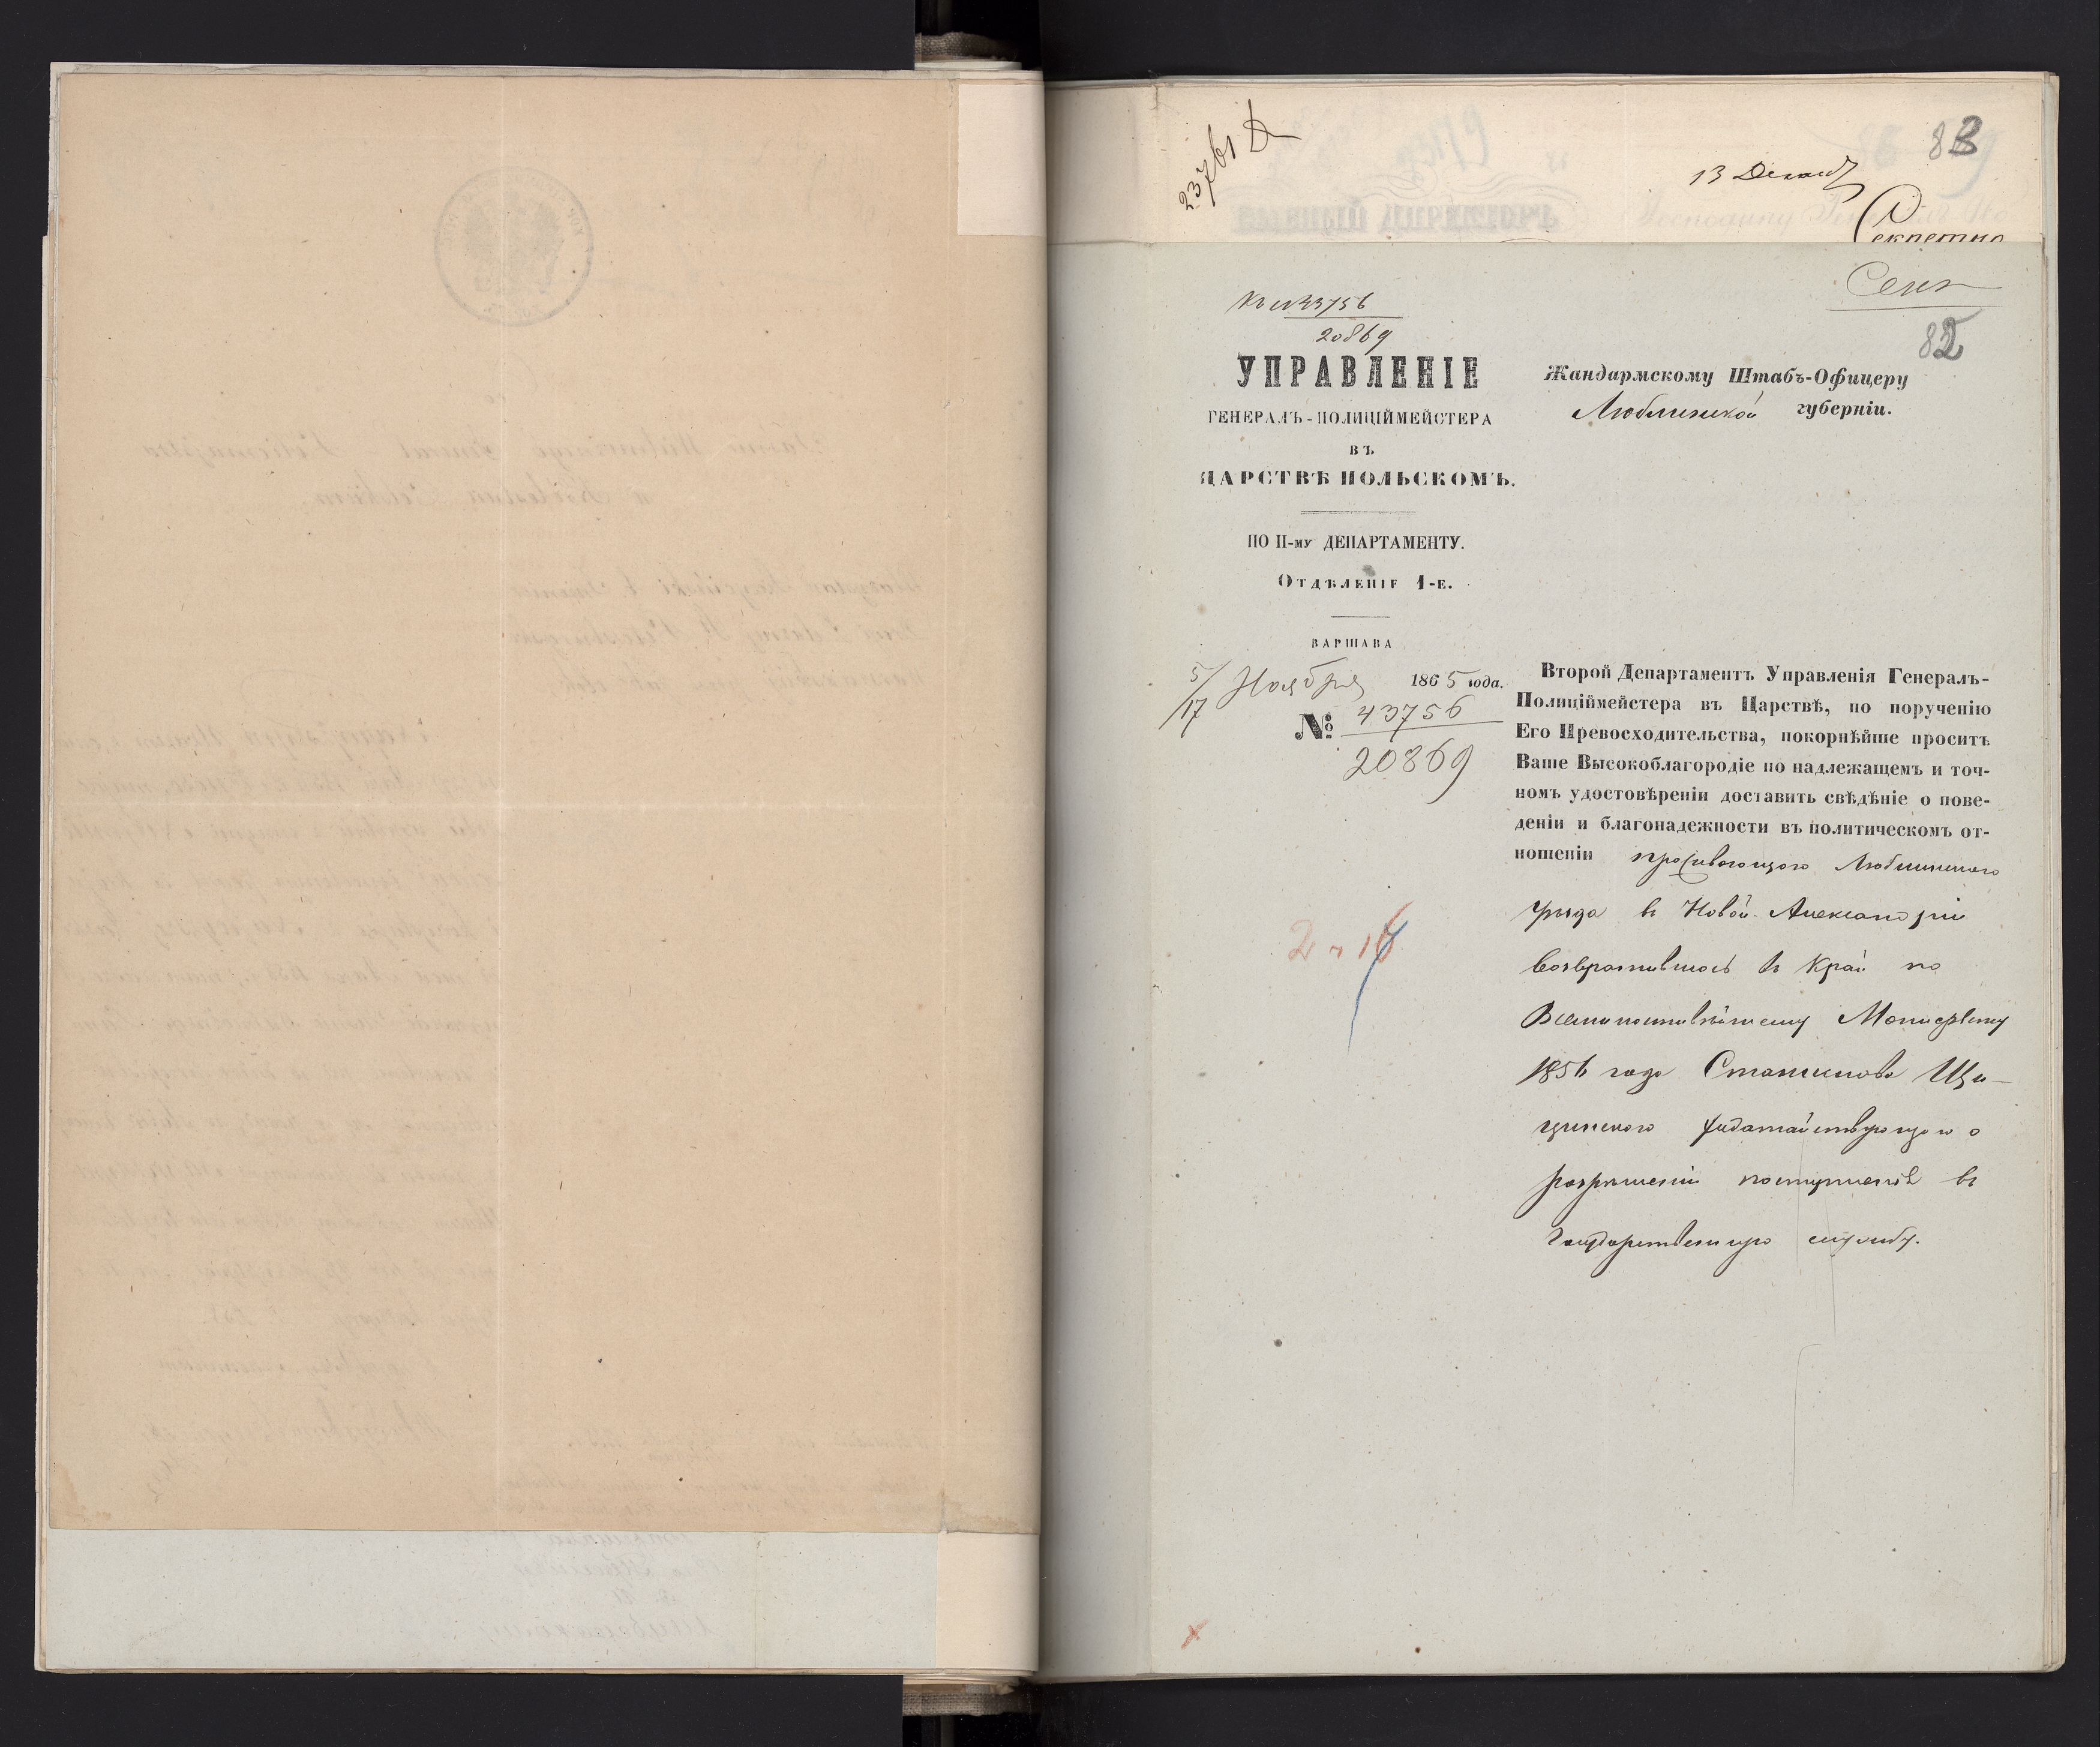 23761
13 Декаб
83
Секретно
Секр
82
К № 43756
20869
УПРАВЛЕНІЕ
ГЕНЕРАЛЪ-ПОЛИЦІЙМЕЙСТЕРА
ВЪ
ЦАРСТВѢ ПОЛЬСКОМЪ.
ПО II-МУ ДЕПАРТАМЕНТУ.
ОТДѢЛЕНІЕ 1-Е.
ВАРШАВА
5/17 Ноября 1865 года.
№ 43756
20869
Жандармскому Штабъ-Офицеру
Люблинской губерніи.
Второй Департаментъ Управленія Генералъ-
Полиціймейстера въ Царствѣ, по порученію
Его Превосходительства, покорнѣйше проситъ
Ваше Высокоблагородіе по надлежащемъ и точ-
номъ удостовѣреніи доставить свѣдѣніе о пове-
деніи и благонадежности въ политическомъ от-
ношеніи проживающаго Люблинскаго
уѣзда в Новой Александріи
возвратившагося в Край по
Всемилостивѣйшему Манифесту
1856 года Станислава
ходатайствующаго о
разрѣшеніи поступленія въ
Государственную службу.